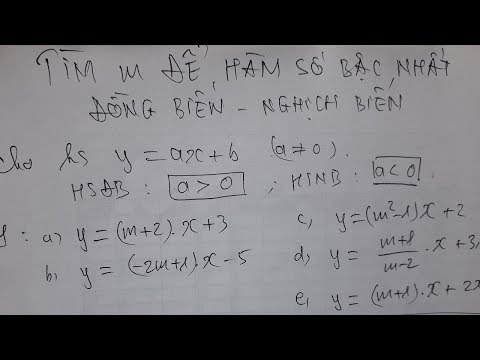 TÌM m ĐỂ HÀM SỐ BẬC NHẤT
ĐỒNG BIẾN - NGHỊCH BIẾN
Cho hs y = ax + b (a ≠ 0).
HSĐB : a > 0 ; HSNB : a < 0
a, y = (m+2).x + 3
b, y = (-2m+1).x - 5
c, y = (m²-1)x + 2
d, y = \frac{m+1}{m-2}.x + 3
e, y = (m+1).x + 2x